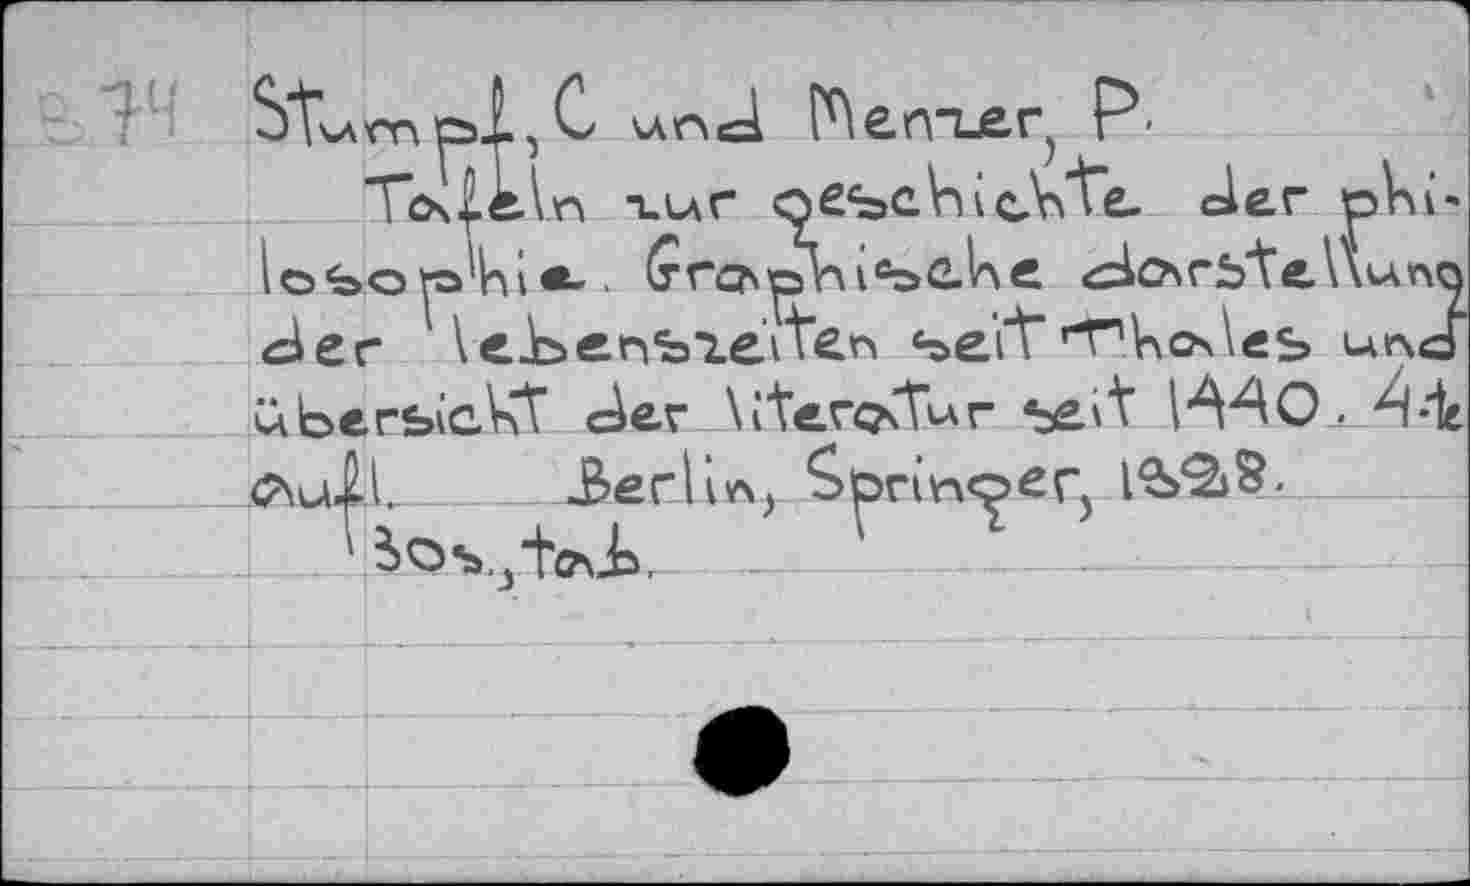 74 Stumpf, C und Menzer, P.
Tafeln zur geschichte der phi-
losophie. Graphische darstellung
der lebenszeiten seit Thales und
übersicht der literatur seit 1440. 4te
aufl. Berlin, Springer, 1928.
30s., tab.